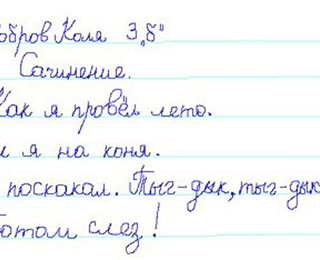 обров Коля 3 „б"
Сочинение.
Как я провёл лето.
л я на коня.
поскакал. Тыг-дык, тыг-дык
Потом слез!